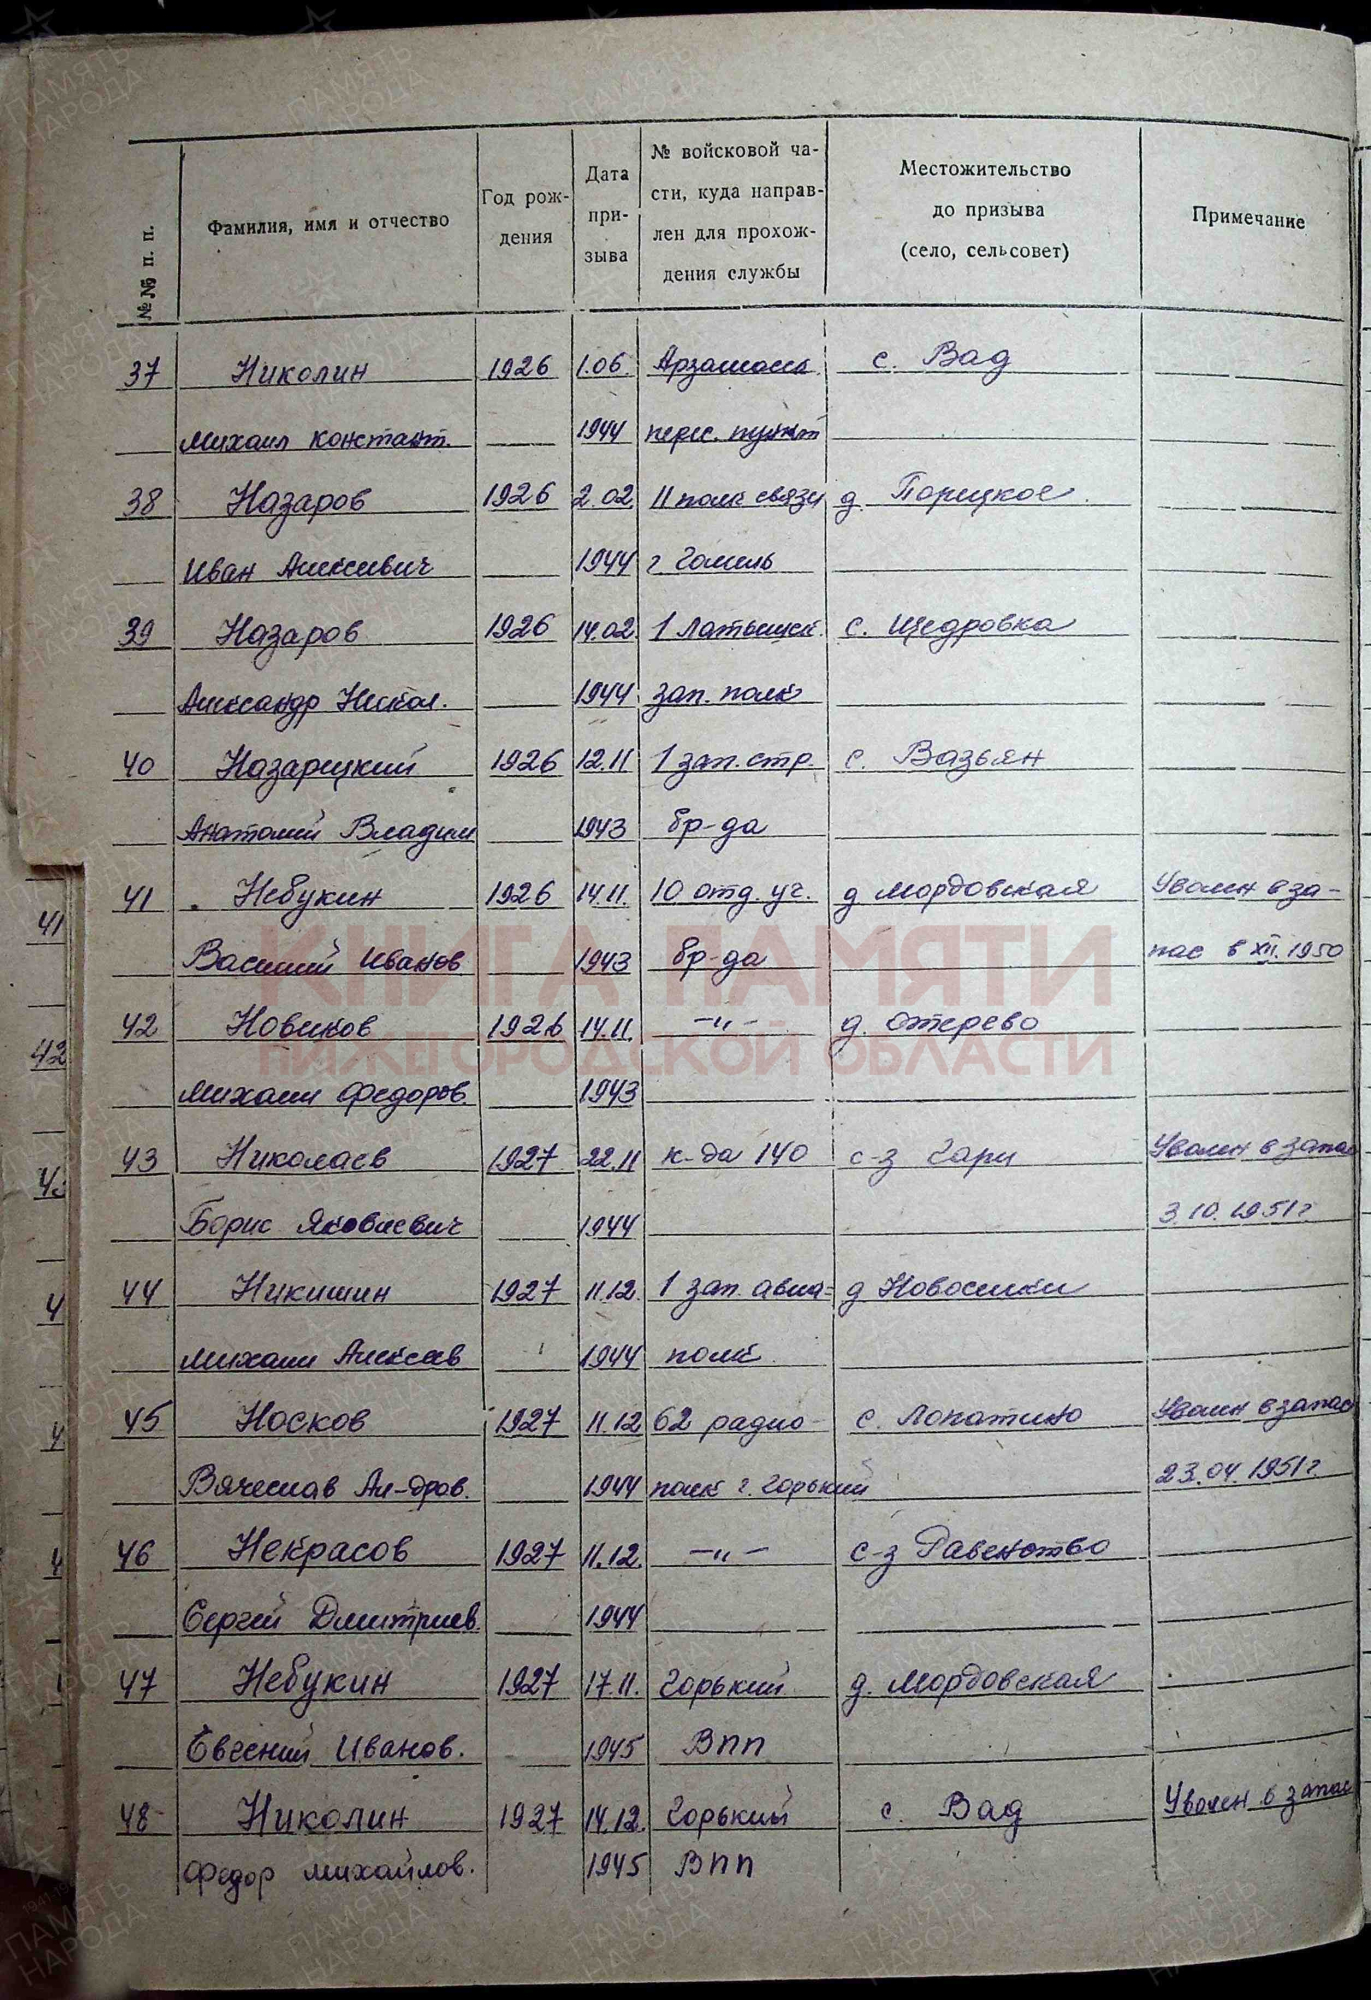 №№ п. п. Фамилия, имя и отчество Год рождения Дата призыва № войсковой части, куда направлен для прохождения службы Местожительство до призыва (село, сельсовет) Примечание
37 Николин 1926 1.06. Арзамасск. с. Вад
Михаил Констант. 1944 перес. пункт
38 Назаров 1926 2.02 11 полк связи д. Порецкое.
Иван Алексеевич 1944 г Гомель
39 Назаров 1926 14.02 1 Латышск. с. Щедровка
Александр Никол. 1944 зап. полк
40 Назарецкий 1926 12.11 1 зап. стр. с. Вазьян
Анатолий Владим 1943 бр-да
41 Небукин 1926 14.11. 10 отд. уч. д Мордовская Уволен в за-
Василий Иванов. 1943 бр-да пас в XII. 1950
42 Новиков 1926 14.11. —"— д. Отерево
Михаил Федоров. 1943
43 Николаев 1927 22.11 к-да 140 с-з Гари Уволен в запас
Борис Яковлевич 1944 3.10.1951г
44 Никишин 1927 11.12. 1 зап. авиа= д Новоселки
Михаил Алексеев 1944 полк
45 Носков 1927 11.12 62 радио- с. Лопатино Уволен в запас
Вячеслав Ал-дров. 1944 полк г. Горький 23.04.1951г.
46 Некрасов 1927 11.12. —"— с-з Равенство
Сергей Дмитриев. 1944
47 Небукин 1927 17.11. Горький д. Мордовская
Евгений Иванов. 1945 ВПП
48 Николин 1927 14.12. Горький с. Вад Уволен в запас
Федор Михайлов. 1945 ВПП
41
42
КНИГА ПАМЯТИ
НИЖЕГОРОДСКОЙ ОБЛАСТИ
ПАМЯТЬ
НАРОДА